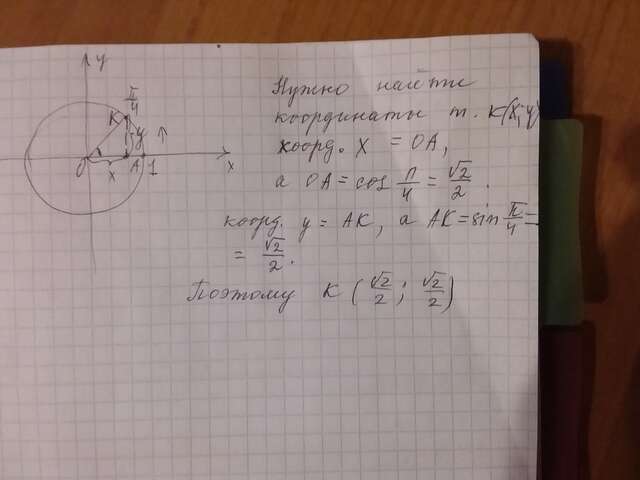 y
π/4
K
y
0 x A 1 x
Нужно найти
координаты т. K(x; y)
коорд. x = OA,
а OA = cos π/4 = √2/2.
коорд. y = AK, а AK = sin π/4 =
= √2/2.
Поэтому K (√2/2; √2/2)